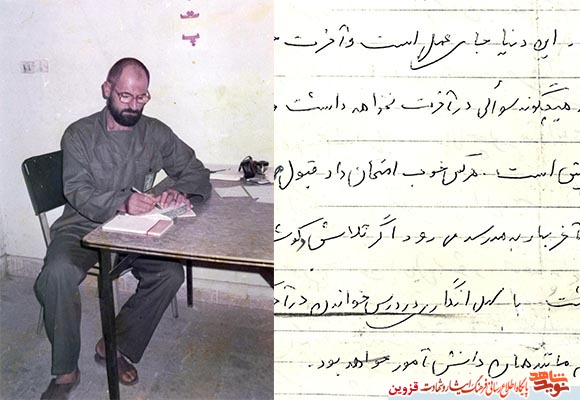 ت
پ
این دنیا جای عمل است و آخرت
هیچگونه سوالی در آخرت نخواهد داشت
است. هرکس خوب امتحان داد قبول
به مدرسه می رود اگر تلاش و کوش
با سهل انگاری در درس خواندن در آ
مانند همان دانش آموز خواهد بود.
نوید شاهد
پایگاه اطلاع رسانی فرهنگ ایثار و شهادت قزوین